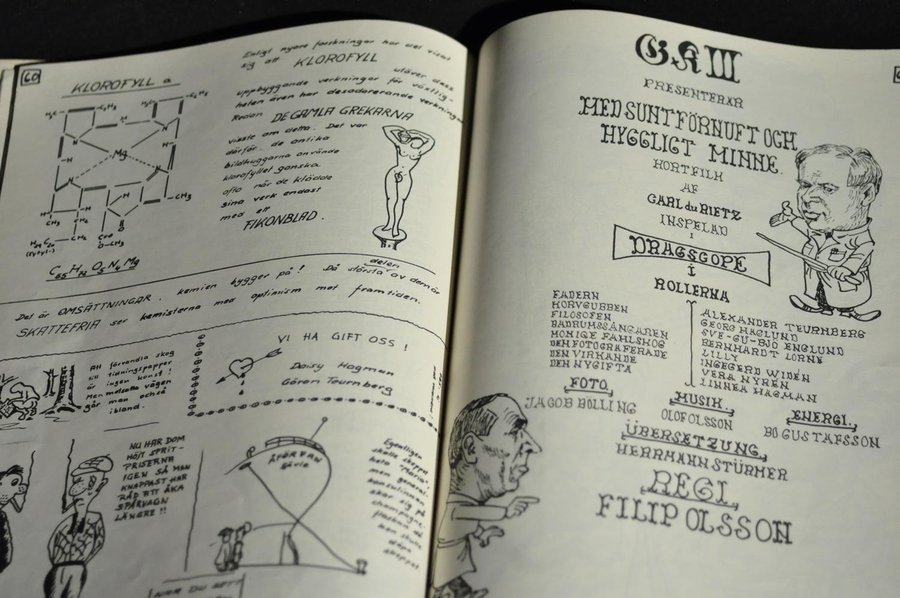 60
KLOROFYLL a
H₂C
C₂H₅
H₃C
H
C₂H₅
N
N
H
Mg
H
N
N
H
CH₃
CH₃
H₃₉C₂₀
(Fytyl-)
COO
O-CH₃
C₅₅H₇₂O₅N₄Mg
Enligt nyare forskningar har det visat
sig att KLOROFYLL utöver dess
uppbyggande verkningar för växtlig-
heten även har desodorerande verkningar
Redan DE GAMLA GREKARNA
visste om detta. Det var
därför de antika
bildhuggarna använde
klorofyllet ganska
ofta när de klädde
sina verk endast
med ett
FIKONBLAD.
Det är OMSÄTTNINGAR, kemien bygger på! Då största delen av dem är
SKATTEFRIA ser kemisterna med optimism mot framtiden.
Att förvandla skog
till tidningspapper
är ingen konst!
Men motsatta vägen
går man också
ibland.
VI HA GIFT OSS!
Daisy Hagman
Göran Tournberg
NU HAR DOM
HÖJT SPRIT-
PRISERNA
IGEN SÅ MAN
KNAPPAST HAR
RÅD ATT ÅKA
SPÅRVAGN
LÄNGRE!!
Egentligen
skulle skeppet
heta "Maria"
men general-
konsulinnan
skar sig på
champagne-
flaskan då
hon skulle
döpa
skeppet
GKIII
PRESENTERAR
MED SUNT FÖRNUFT OCH
HYGGLIGT MINNE.
KORTFILM
AF
CARL du RIETZ
INSPELAD
I
DRAGSCOPE
I
ROLLERNA
FADERN
KORVGUBBEN
FILOSOFEN
BADRUMSSÅNGAREN
MONIGE FAHLSKOG
DEN FOTOGRAFERADE
DEN VIRKANDE
DEN NYGIFTA
ALEXANDER TEURNBERG
GEORG HAGLUND
SVE-GU-BJO ENGLUND
BERNHARDT LORNE
LILLY
INGEGERD WIDÉN
VERA NYRÉN
LINNEA HAGMAN
FOTO
JACOB BÖLLING
MUSIK
OLOF OLSSON
ENERGI
BO GUSTAFSSON
ÜBERSETZUNG
HERRMANN STÜRMER
REGI
FILIP OLSSON